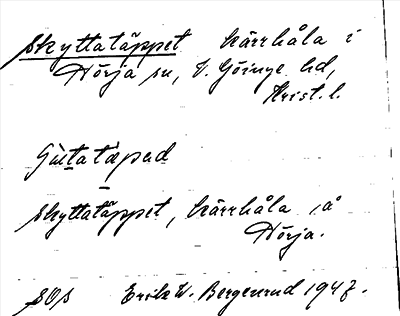 Skyttatäppet kärrhåla i
Nörja sn, V. Göinge hd,
Krist. l.
skyttatäppet, kärrhåla i å
Nörja.
SOS Erik W. Bergenrud 1947.